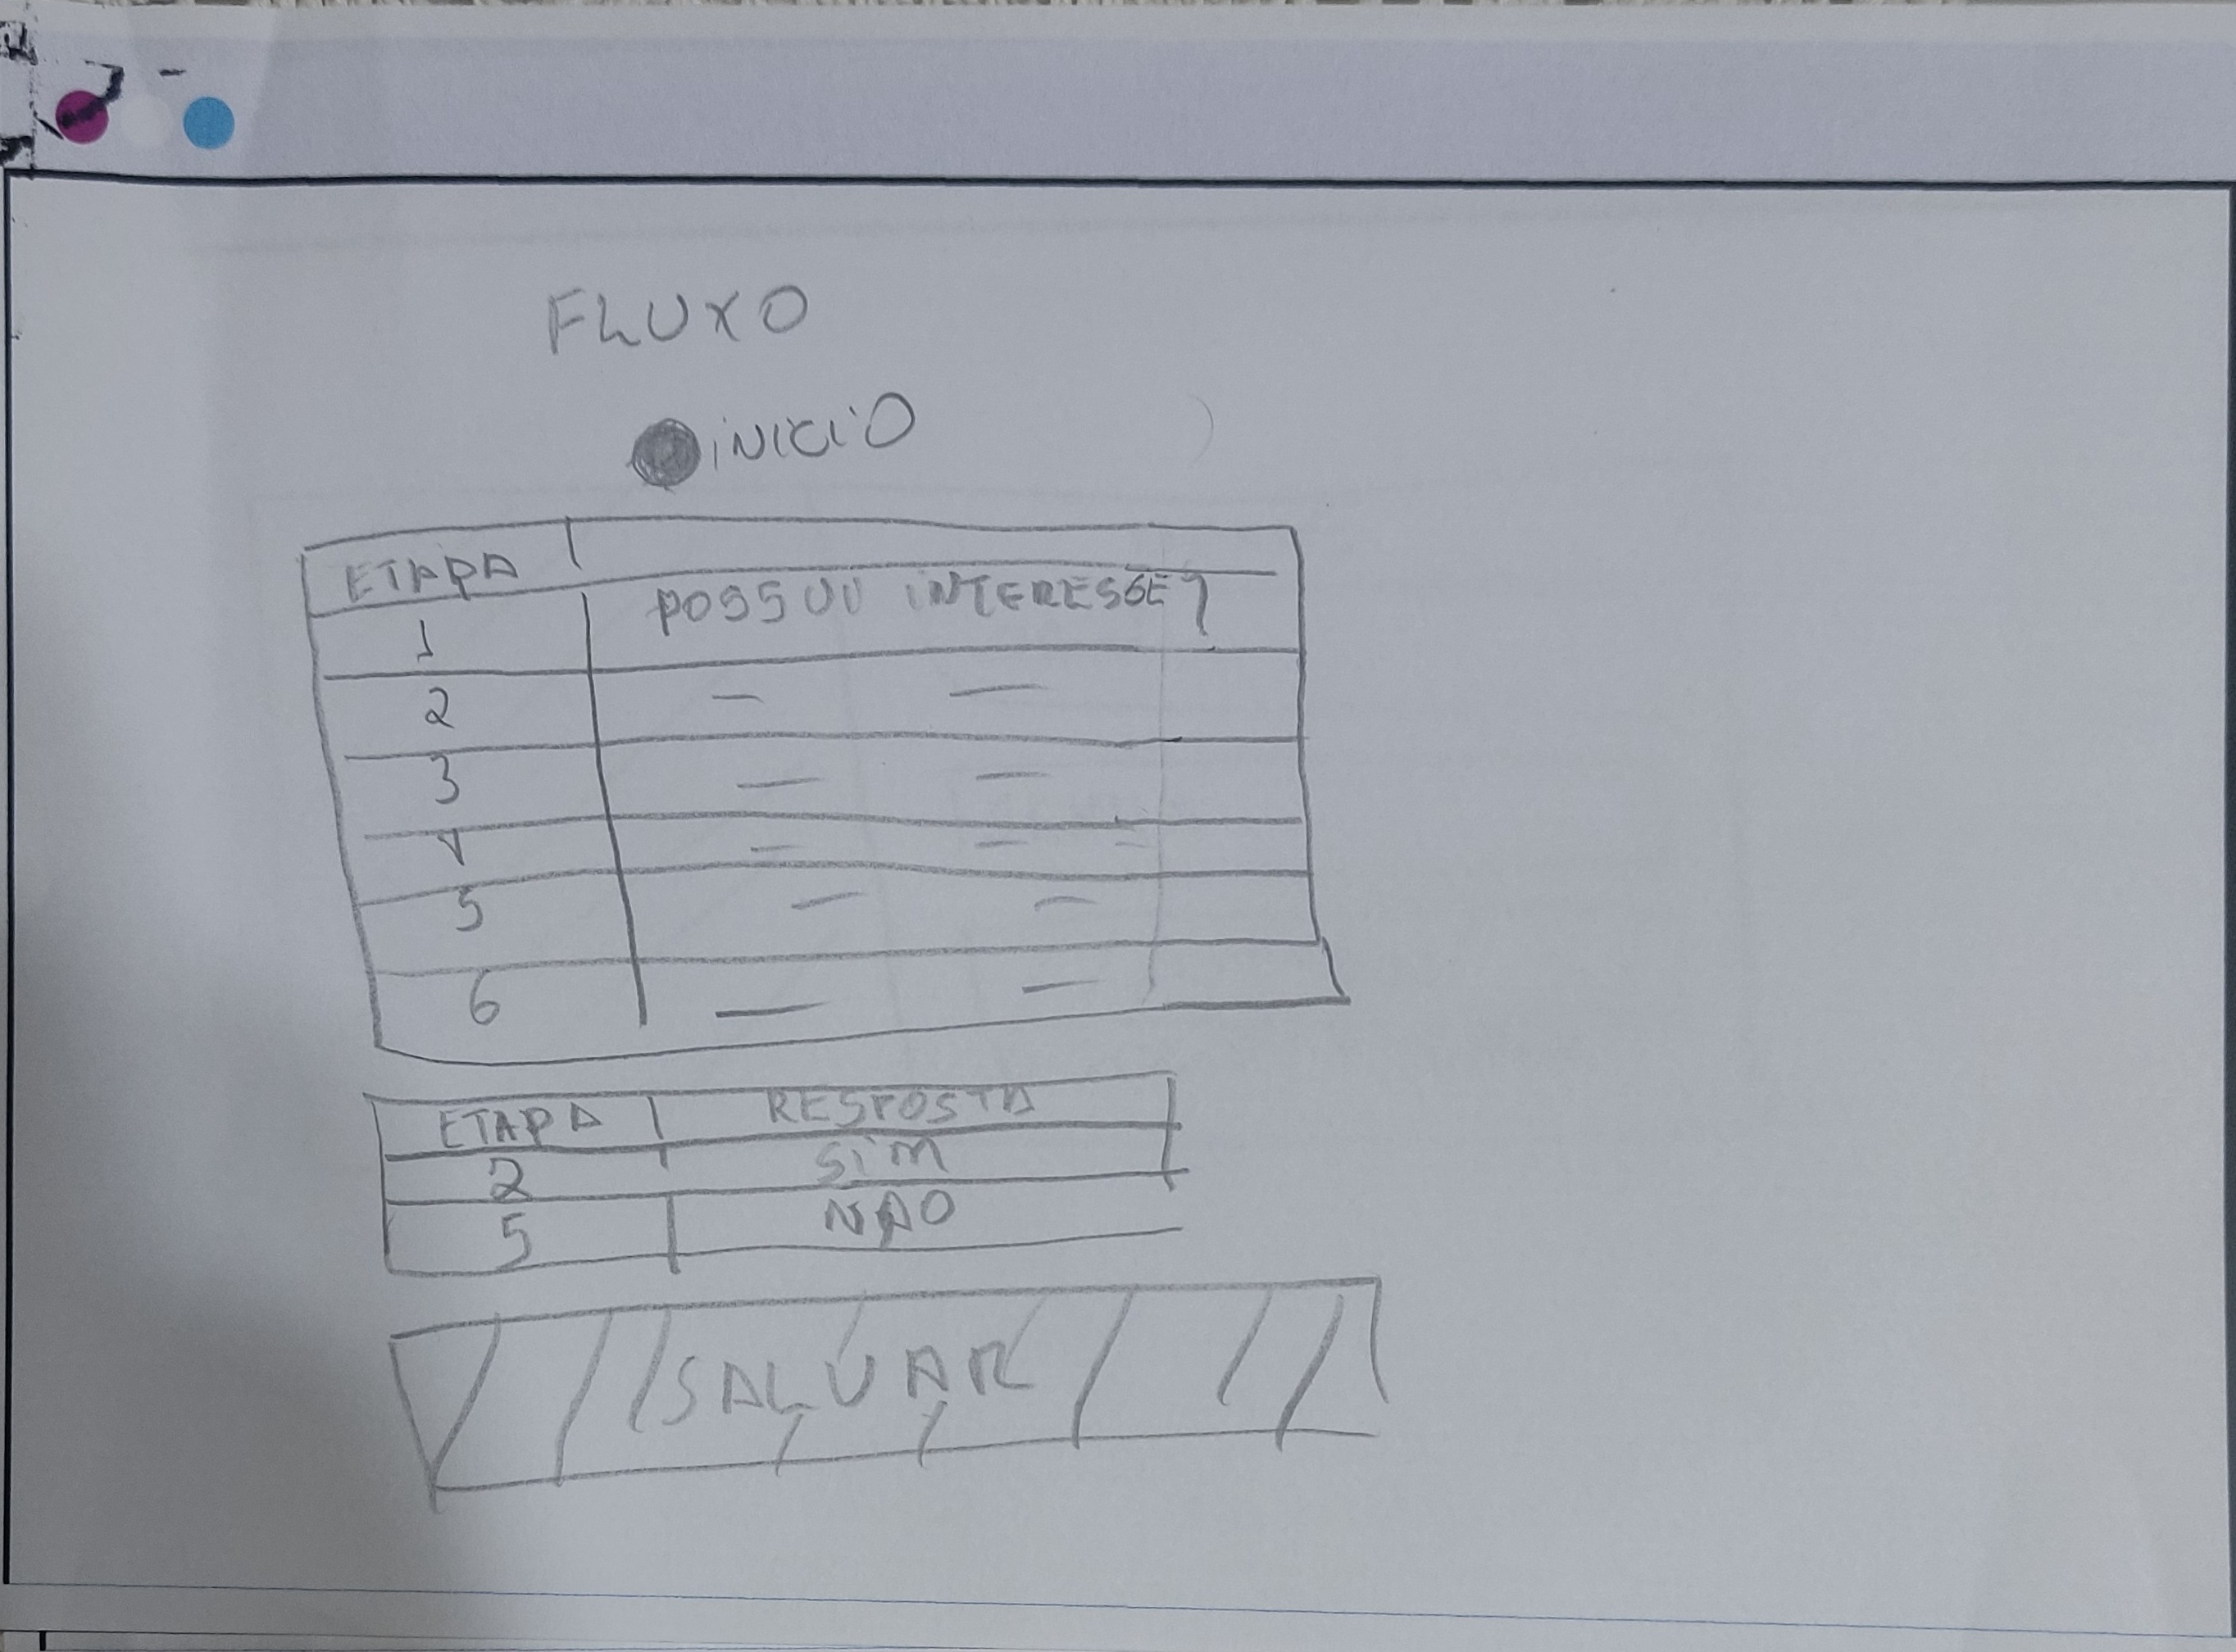 FLUXO
INICIO
ETAPA
1 POSSUI INTERESSE?
2 — —
3 — —
4 — —
5 — —
6 — —
ETAPA RESPOSTA
2 SIM
5 NÃO
SALVAR